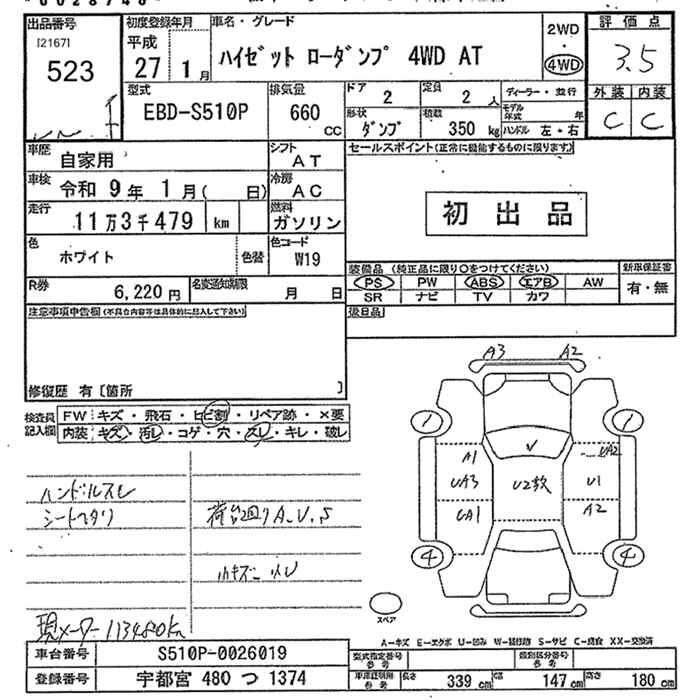 出品番号
[21671]
523
初度登録年月
平成
27 1月
車名・グレード
ハイゼット ローダンプ 4WD AT
2WD
・
4WD
評価点
3.5
外装 内装
C C
型式
EBD-S510P
排気量
660
CC
ドア
2
定員
2 人
形状
ダンプ
積載
350 kg
ディーラー・並行
モデル年式 年
ハンドル 左・右
車歴
自家用
シフト
AT
車検
令和 9年 1月( 日)
冷房
AC
走行
11万3千479 km
燃料
ガソリン
色
ホワイト
色替
色コード
W19
R券
6,220円
名変通知期限
月 日
セールスポイント(正常に機能するものに限ります)
初出品
装備品 (純正品に限り○をつけてください)
PS PW ABS エアB AW
SR ナビ TV カワ
新車保証書
有・無
後日品
注意事項申告欄(不具合内容等は具体的に記入して下さい)
修復歴 有〔箇所 〕
検査員記入欄
FW キズ・飛石・ヒビ割・リペア跡・×要
内装 キズ・汚レ・コゲ・穴・スレ・キレ・破レ
ハンドルスレ
シートヘタリ
荷台廻りA.U.S
小キズ
現メーター113480km
A3 A2
1 1
A1
UA3
UA1
V
U2数
UA2
U1
A2
4 4
スペア
A-キズ E-エクボ U-凹ミ W-補修跡 S-サビ C-腐食 XX-交換済
車台番号
S510P-0026019
登録番号
宇都宮 480 つ 1374
型式指定番号
参考
類別区分番号
参考
車庫証明用
参考
長さ 339 cm
幅 147 cm
高さ 180 cm